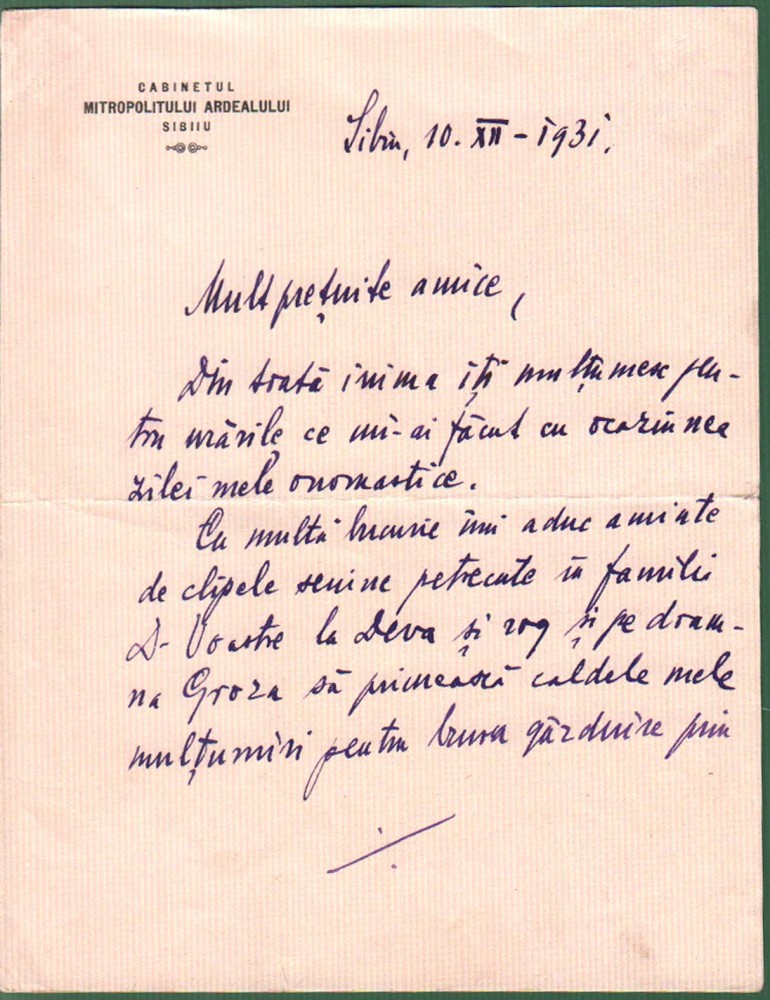 CABINETUL
MITROPOLITULUI ARDEALULUI
SIBIIU
Sibiu, 10. XII - 1931.
Mult prețuite amice,
Din toată inima îți mulțumesc pen-
tru urările ce mi-ai făcut cu ocaziunea
zilei mele onomastice.
Cu multă bucurie îmi aduc aminte
de clipele senine petrecute în familii
D-Voastre la Deva și rog și pe doam-
na Groza să primească caldele mele
mulțumiri pentru buna găzduire prin
./.